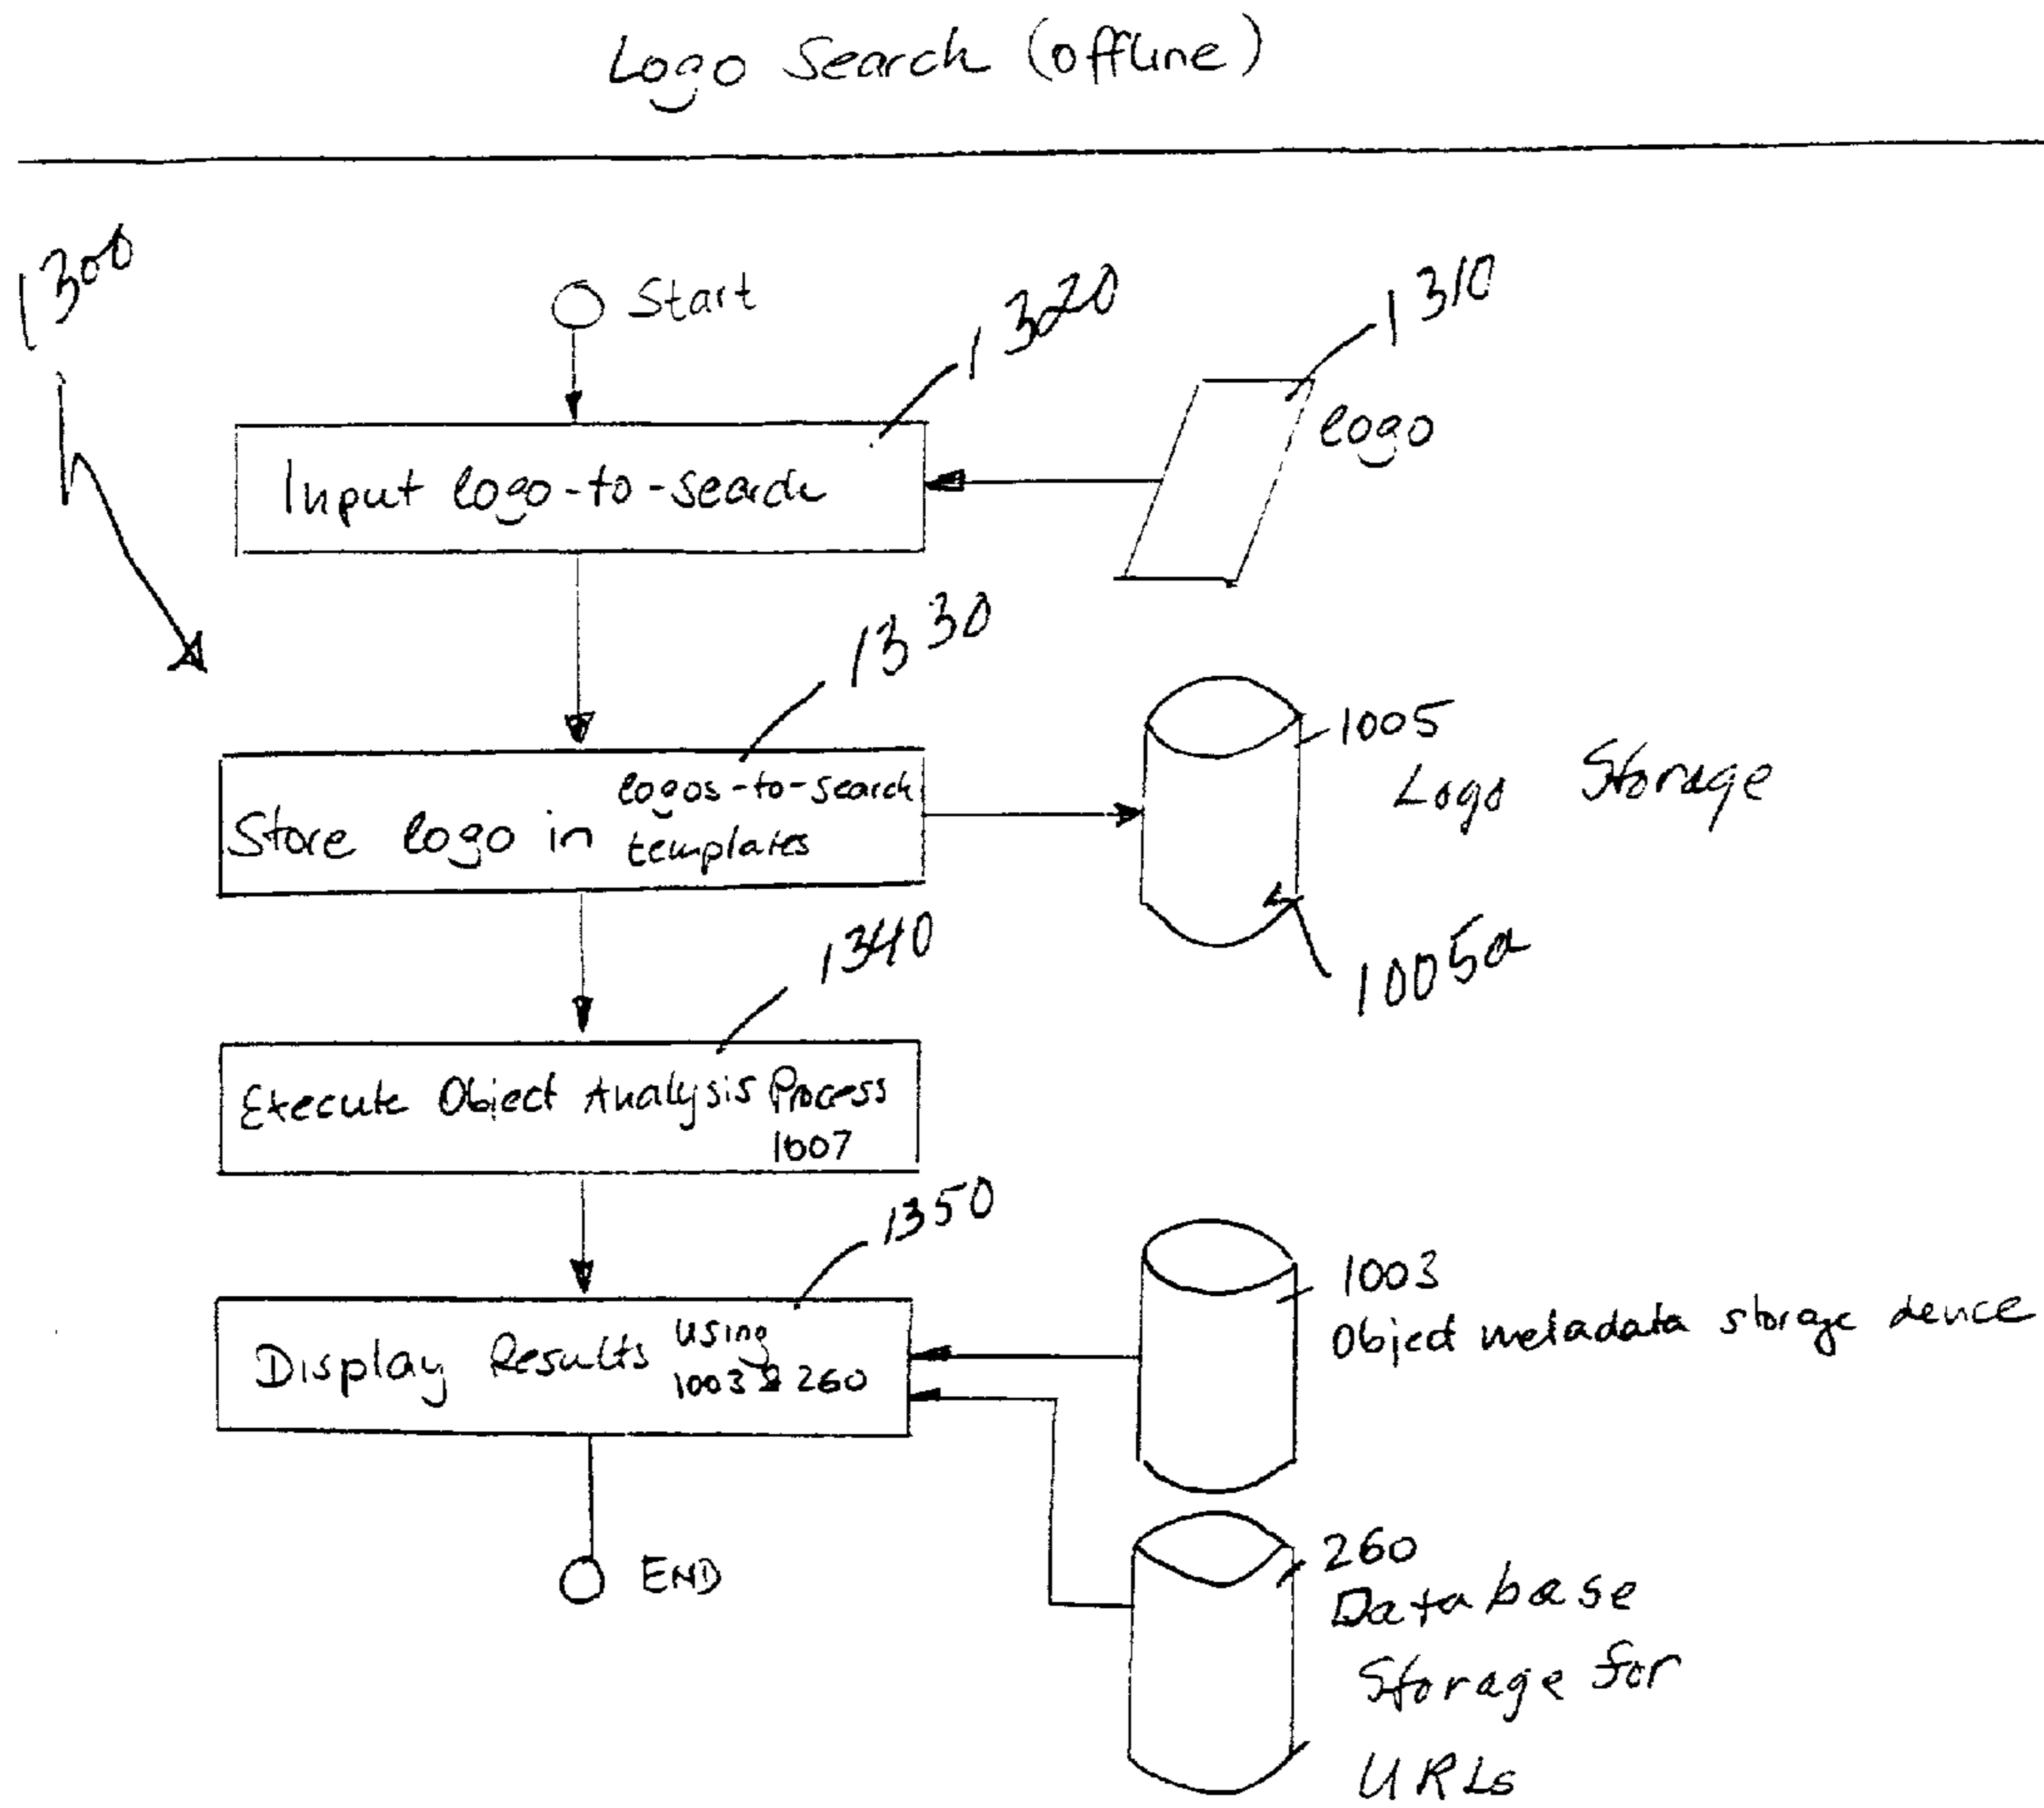 Logo Search (offline)
1300
Start
1320
1310
Input logo-to-search
logo
1330
Store logo in logos-to-search
templates
1005
Logo Storage
1005a
1340
Execute Object Analysis Process
1007
1350
Display Results using
1003 & 260
1003
Object metadata storage device
END
260
Database
Storage for
URLs